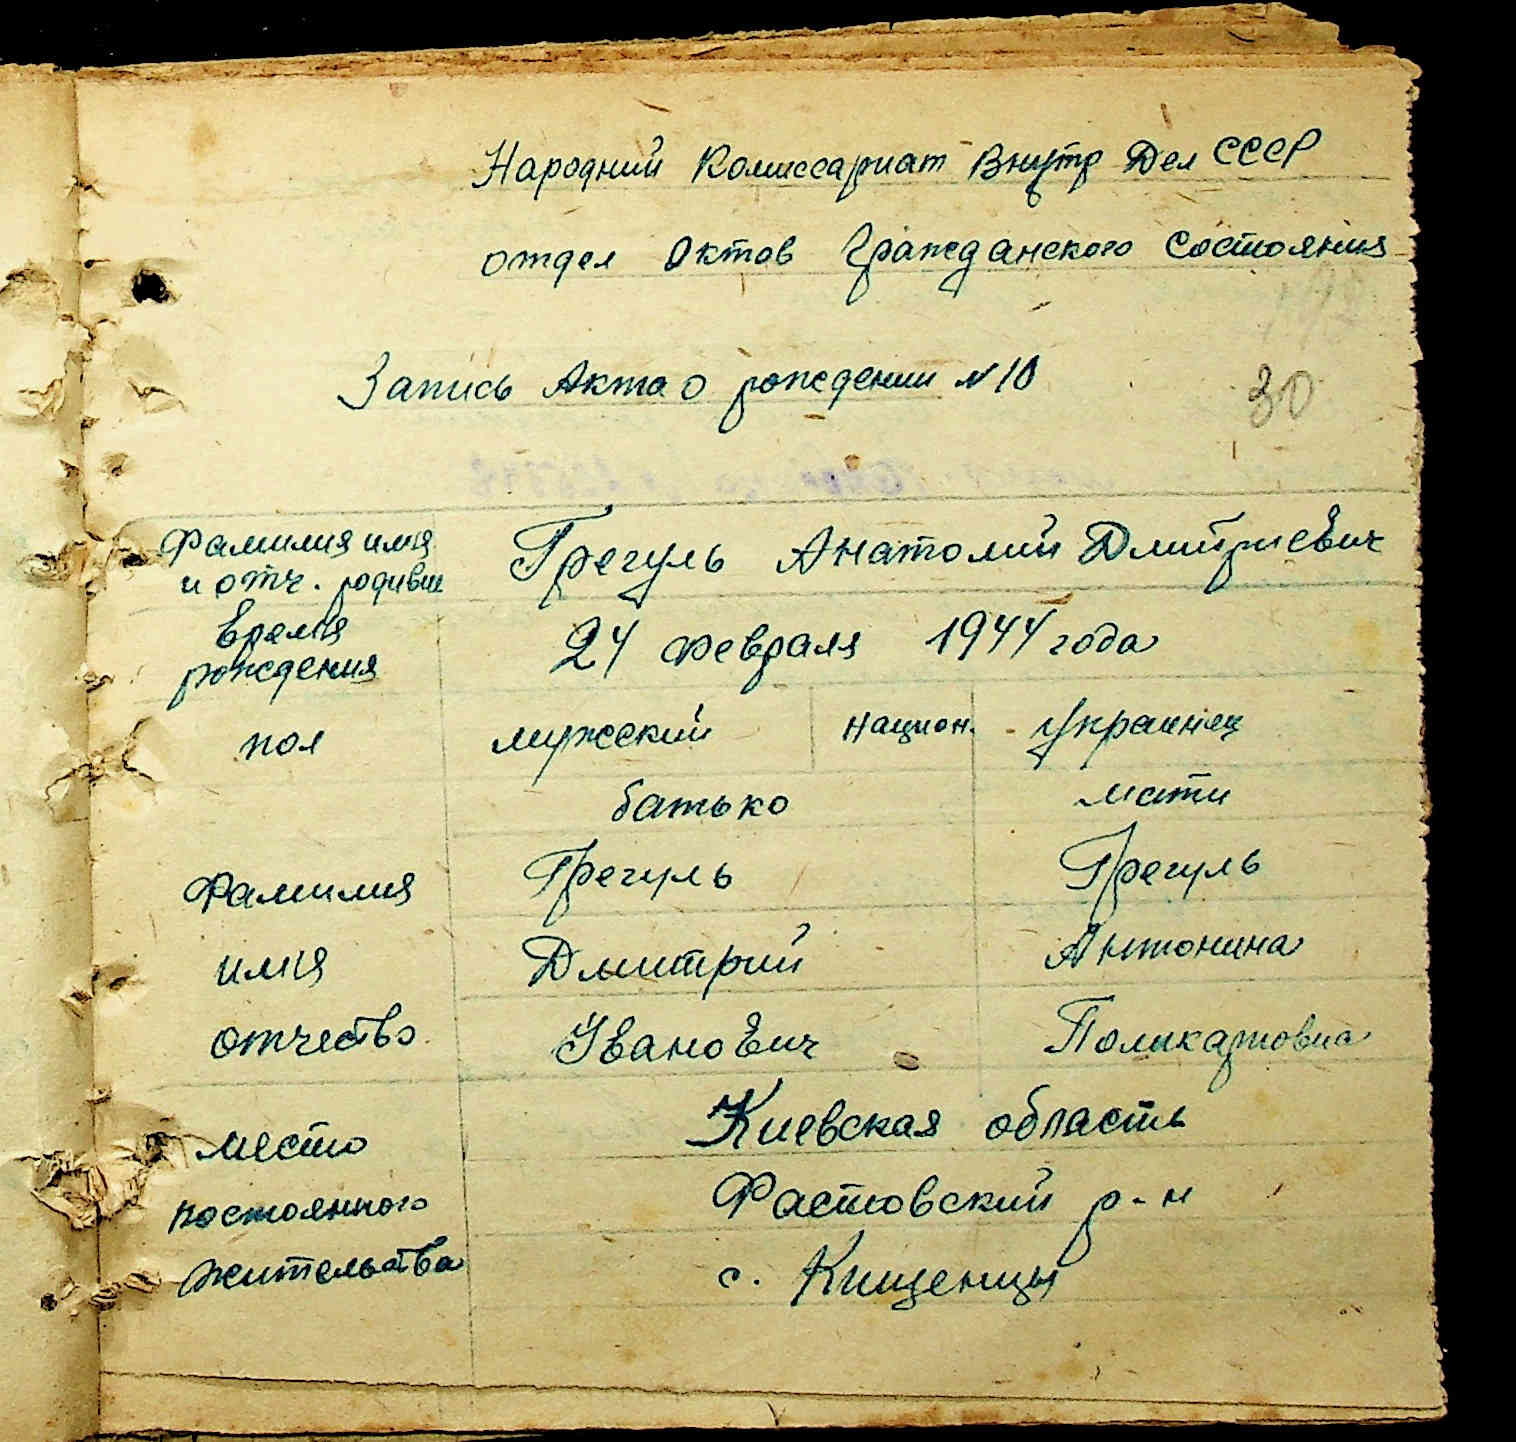 Народний Комиссариат Внутр Дел СССР
отдел Актов Гражданского Состояния
Запись Акта о рождении N 10
30
Фамилия имя и отч. родивше Грегуль Анатолий Дмитриевич
время рождения 24 февраля 1944 года
пол мужский национ. Украинец
батько мати
Фамилия Грегуль Грегуль
имя Дмитрий Антонина
отчество Иванович Поликарповна
место постоянного жительства Киевская область
Фастовский р-н
с. Кищенцы